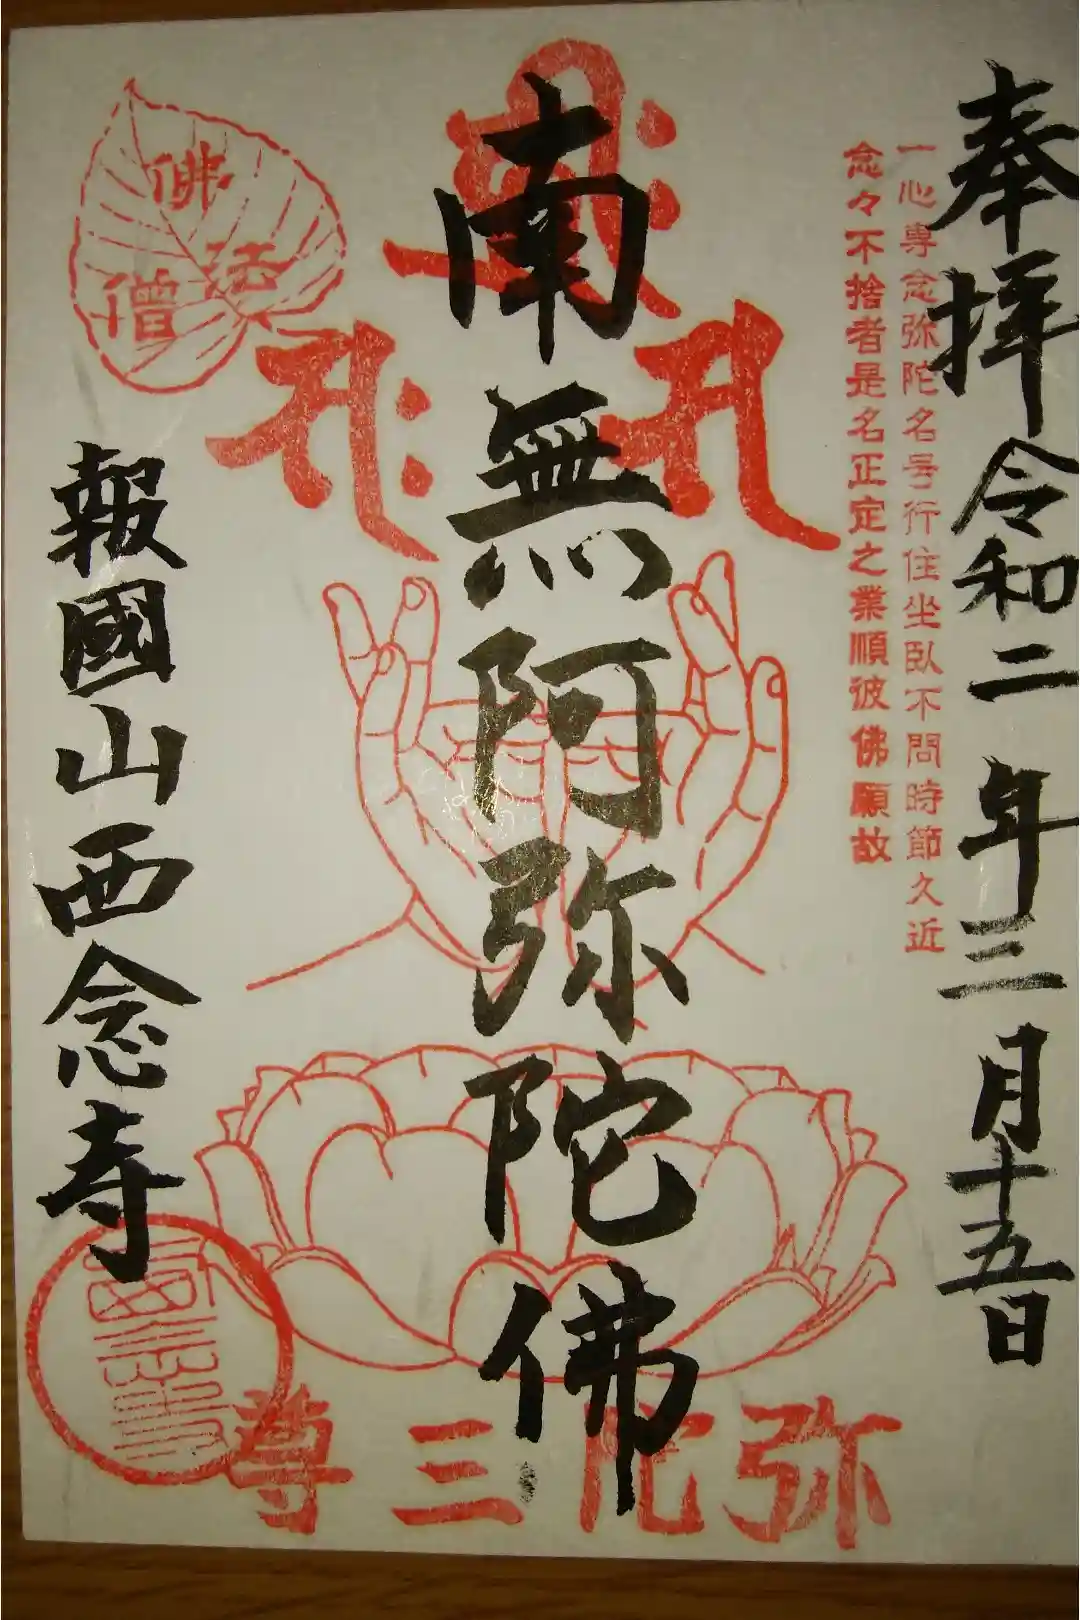 奉拝 令和二年三月十五日
一心専念弥陀名号行住坐臥不問時節久近
念々不捨者是名正定之業順彼佛願故
南無阿弥陀佛
佛
法
僧
報國山西念寺
弥陀三尊